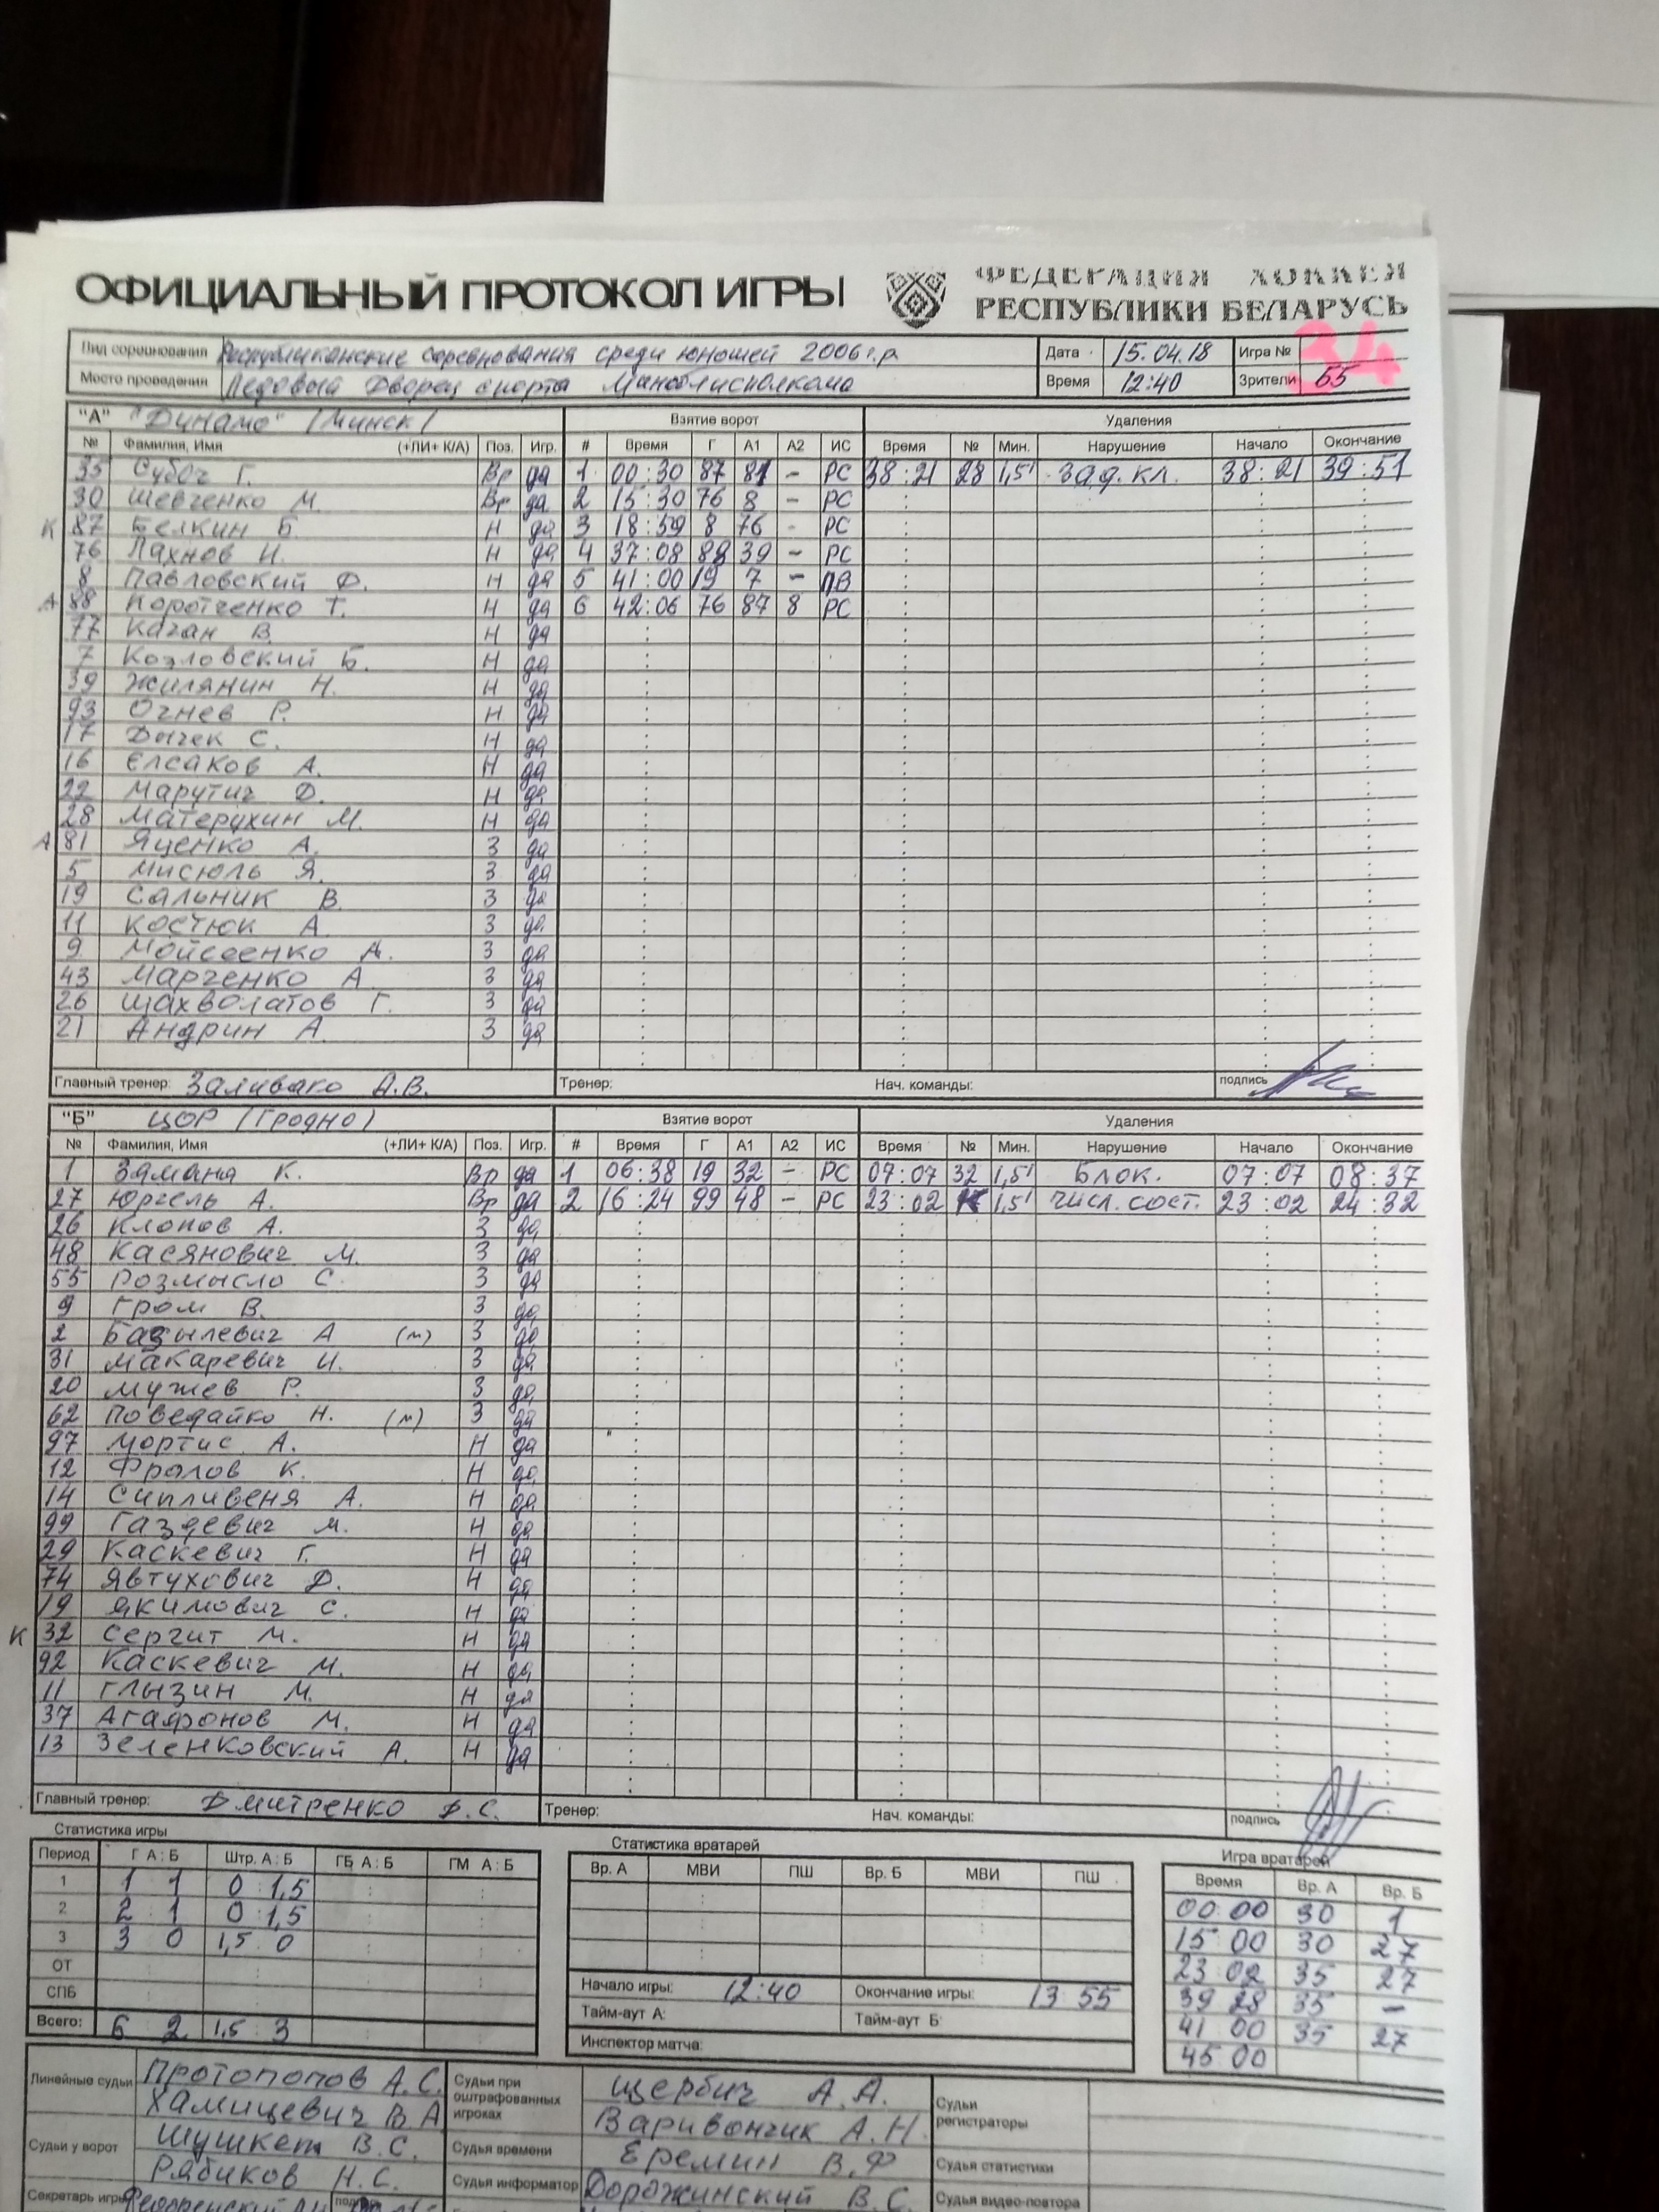 ОФИЦИАЛЬНЫЙ ПРОТОКОЛ ИГРЫ
ФЕДЕРАЦИЯ ХОККЕЯ
РЕСПУБЛИКИ БЕЛАРУСЬ
Вид соревнования Республиканские соревнования среди юношей 2006 г.р Дата 15.04.18 Игра № 34
Место проведения Ледовый Дворец спорта Миноблисполкома Время 12:40 Зрители 55
"А" "Динамо" (Минск) Взятие ворот Удаления
№ Фамилия, Имя (+ЛИ+ К/А) Поз. Игр. # Время Г А1 А2 ИС Время № Мин. Нарушение Начало Окончание
35 Субоч Г. Вр да 1 00:30 87 81 - РС 38:21 28 1,5' зад. кл. 38:21 39:51
30 Шевченко М. Вр да 2 15:30 76 8 - РС
К 87 Белкин Б. Н да 3 18:59 8 76 - РС
76 Лахнов И. Н да 4 37:08 88 39 - РС
8 Павловский Ф. Н да 5 41:00 19 7 - ПВ
А 88 Коротченко Т. Н да 6 42:06 76 87 8 РС
77 Каган В. Н да
7 Козловский Б. Н да
39 Жилянин Н. Н да
93 Огнев Р. Н да
17 Дычек С. Н да
16 Елсаков А. Н да
22 Марутич Ф. Н да
28 Матерухин М. Н да
А 81 Яценко А. З да
5 Мисюль Я. З да
19 Сальник В. З да
11 Костюк А. З да
9 Мойсеенко А. З да
43 Марченко А З да
26 Шахволатов Г. З да
21 Андрин А. З да
Главный тренер: Заливако А.В. Тренер: Нач. команды: подпись
"Б" ЦОР (Гродно) Взятие ворот Удаления
№ Фамилия, Имя (+ЛИ+ К/А) Поз. Игр. # Время Г А1 А2 ИС Время № Мин. Нарушение Начало Окончание
1 Замана К. Вр да 1 06:38 19 32 - РС 07:07 32 1,5' Блок. 07:07 08:37
27 Юргель А. Вр да 2 16:24 99 48 - РС 23:02 1,5' числ. сост. 23:02 24:32
26 Клопов А. З да
48 Касянович М. З да
55 Розмысло С. З да
9 Гром В. З да
2 Базылевич А (м) З да
31 Макаревич И. З да
20 Мужев Р. З да
62 Поведайко Н. (м) З да
97 Мортис А. Н да
12 Фролов К. Н да
14 Сипливеня А. Н да
99 Газдевич М. Н да
29 Каскевич Г. Н да
74 Явтухович Д. Н да
19 Якимович С. Н да
К 32 Сергит М. Н да
92 Каскевич М. Н да
11 Глызин М. Н да
37 Агафонов М. Н да
13 Зеленковский А. Н да
Главный тренер: Дмитренко Д.С. Тренер: Нач. команды: подпись
Статистика игры Статистика вратарей Игра вратарей
Период Г А : Б Штр. А : Б ГБ А : Б ГМ А : Б Вр. А МВИ ПШ Вр. Б МВИ ПШ Время Вр. А Вр. Б
1 1 1 0 : 1,5 00:00 30 1
2 2 1 0 : 1,5 15 00 30 27
3 3 0 1,5 0 23:02 35 27
ОТ 39 28 35 -
СПБ Начало игры: 12:40 Окончание игры: 13 55 41 00 35 27
Всего: 6 2 1,5 : 3 Тайм-аут А: Тайм-аут Б: 45 00
Инспектор матча:
Линейные судьи Протопопов А.С. Судьи при оштрафованных игроках Щербич А.А. Судьи регистраторы
Хамицевич В.А Варивончик А.Н
Судьи у ворот Шушкет В.С. Судья времени Еремин В.Ф Судья статистики
Рябиков Н.С. Судья информатор Дорожинский В.С. Судья видео-повтора
Секретарь игры